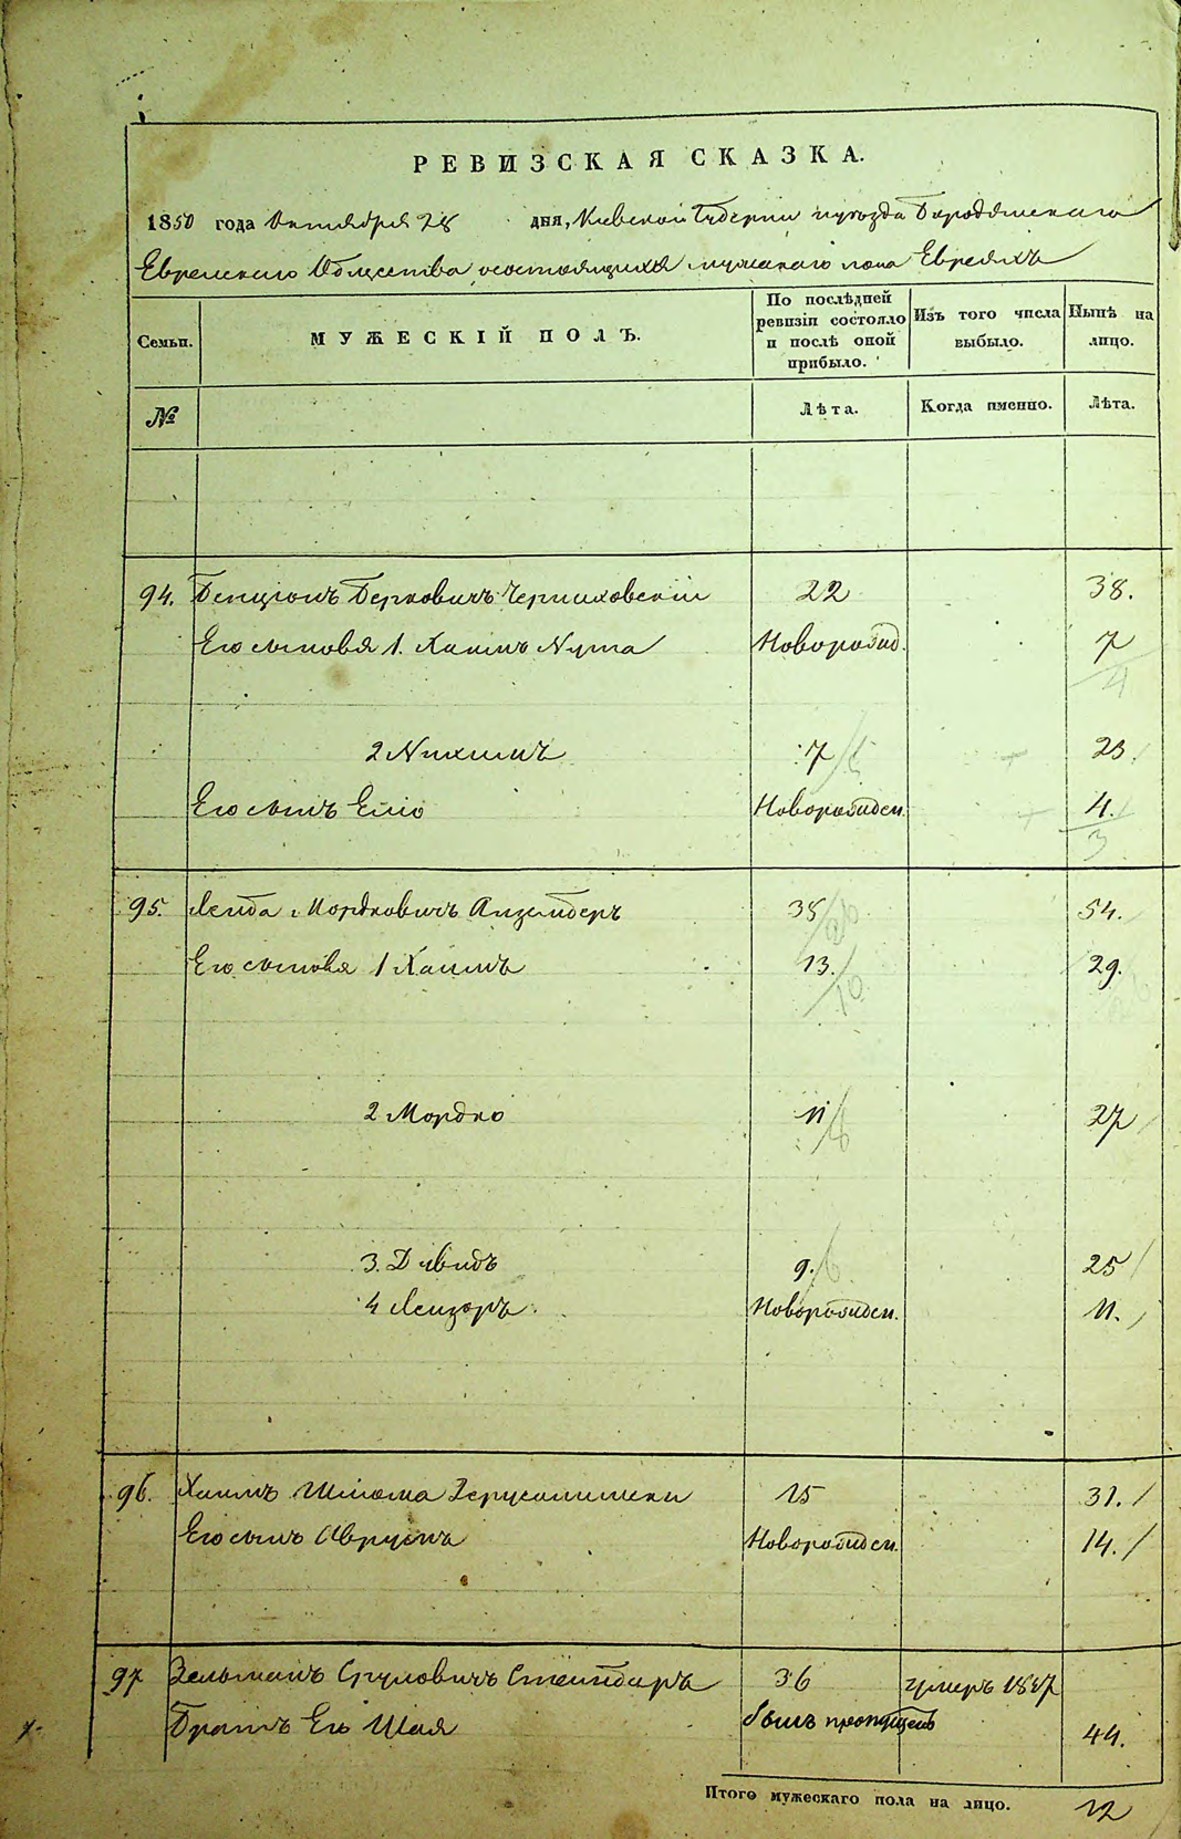 РЕВИЗСКАЯ СКАЗКА.
1850 года Октября 28 дня, Киевской Губернии и уезда Бородянскаго
Еврейскаго Общества о состоящихъ мужскаго пола Евреяхъ
Семьи. МУЖЕСКІЙ ПОЛЪ. По послѣдней ревизіи состояло и послѣ оной прибыло. Изъ того числа выбыло. Нынѣ на лицо.
№ Лѣта. Когда именно. Лѣта.
94. Бенціонъ Берковичъ Черниховскій 22 38.
Его сыновья 1. Хаимъ Нута Новорожд. 7
4
2 Нихимъ 7 23
Его сынъ Еліо Новорожден. 4.
3
95. Лейба Мордковичъ 38 54.
Его сыновья 1 Хаимъ 13. 29.
10
2 Мордко 11 27
3. Давидъ 9. 25
4 Лейзоръ Новорожден. 11.
96. Хаимъ Шлиома Іерусалимски 15 31.
Его сынъ Аврумъ Новорожден. 14.
97 Зельманъ Сруловичъ 36 умеръ 1847
Братъ Его Шая былъ пропущенъ 44.
Итого мужескаго пола на лицо. 12